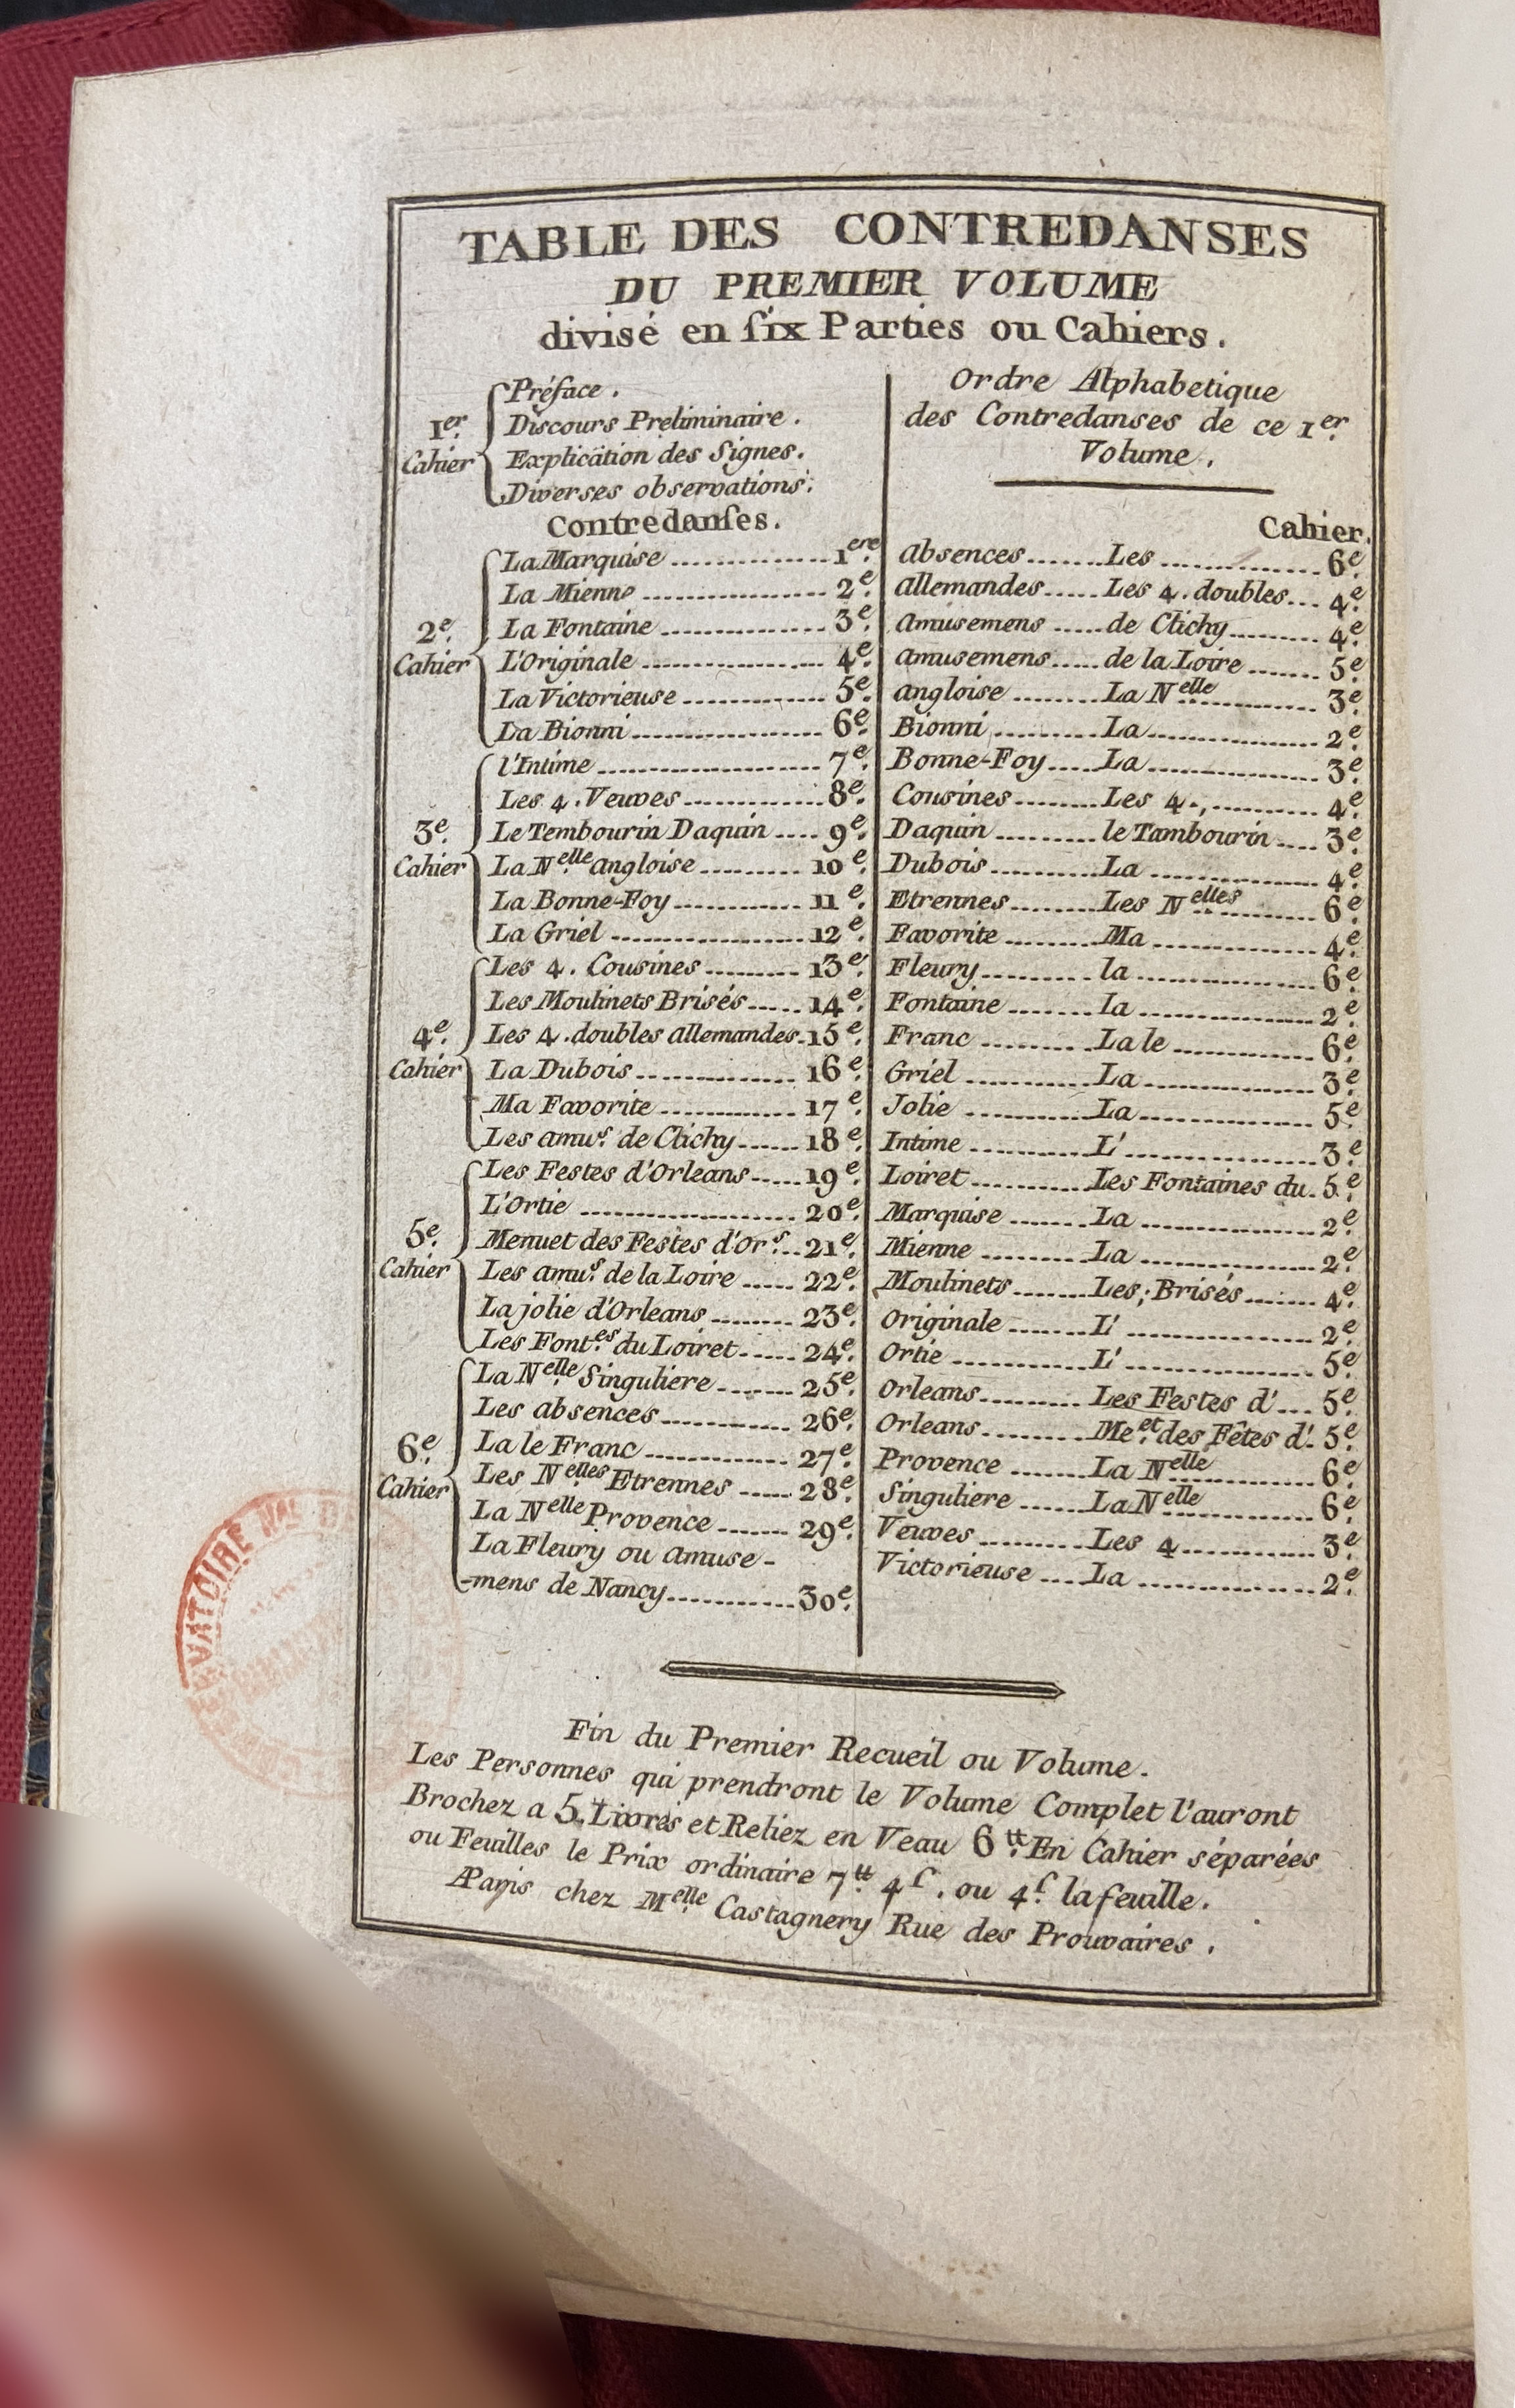 TABLE DES CONTREDANSES
DU PREMIER VOLUME
divisé en six Parties ou Cahiers.
1er. Cahier
Préface.
Discours Preliminaire.
Explication des Signes.
Diverses observations.
Contredanses.
2e. Cahier
La Marquise 1ere.
La Mienne 2e.
La Fontaine 3e.
L'Originale 4e.
La Victorieuse 5e.
La Bionni 6e.
3e. Cahier
l'Intime 7e.
Les 4. Veuves 8e.
Le Tembourin Daquin 9e.
La Nelle. angloise 10e.
La Bonne-Foy 11e.
La Griel 12e.
4e. Cahier
Les 4. Cousines 13e.
Les Moulinets Brisés 14e.
Les 4. doubles allemandes 15e.
La Dubois 16e.
Ma Favorite 17e.
Les amus. de Clichy 18e.
5e. Cahier
Les Festes d'Orleans 19e.
L'Ortie 20e.
Menuet des Festes d'Ors. 21e.
Les amus. de la Loire 22e.
La jolie d'Orleans 23e.
Les Fontes. du Loiret 24e.
6e. Cahier
La Nelle. Singuliere 25e.
Les absences 26e.
La le Franc 27e.
Les Nelles. Etrennes 28e.
La Nelle. Provence 29e.
La Fleury ou amuse-
-mens de Nancy 30e.
Ordre Alphabetique
des Contredanses de ce 1er.
Volume.
Cahier.
absences Les 6e.
allemandes Les 4. doubles 4e.
amusemens de Clichy 4e.
amusemens de la Loire 5e.
angloise La Nelle. 3e.
Bionni La 2e.
Bonne-Foy La 3e.
Cousines Les 4. 4e.
Daquin le Tambourin 3e.
Dubois La 4e.
Etrennes Les Nelles. 6e.
Favorite Ma 4e.
Fleury la 6e.
Fontaine la 2e.
Franc La le 6e.
Griel La 3e.
Jolie La 5e.
Intime L' 3e.
Loiret Les Fontaines du 5e.
Marquise La 2e.
Mienne La 2e.
Moulinets Les; Brisés 4e.
Originale L' 2e.
Ortie L' 5e.
Orleans Les Festes d' 5e.
Orleans Meet. des Fêtes d' 5e.
Provence La Nelle. 6e.
Singuliere La Nelle. 6e.
Veuves Les 4 3e.
Victorieuse La 2e.
Fin du Premier Recueil ou Volume.
Les Personnes qui prendront le Volume Complet l'auront
Brochez a 5. Livres et Reliez en Veau 6tt. En Cahier séparées
ou Feuilles le Prix ordinaire 7tt. 4s. ou 4s. la feuille.
A Paris chez Melle. Castagnery Rue des Prouvaires.